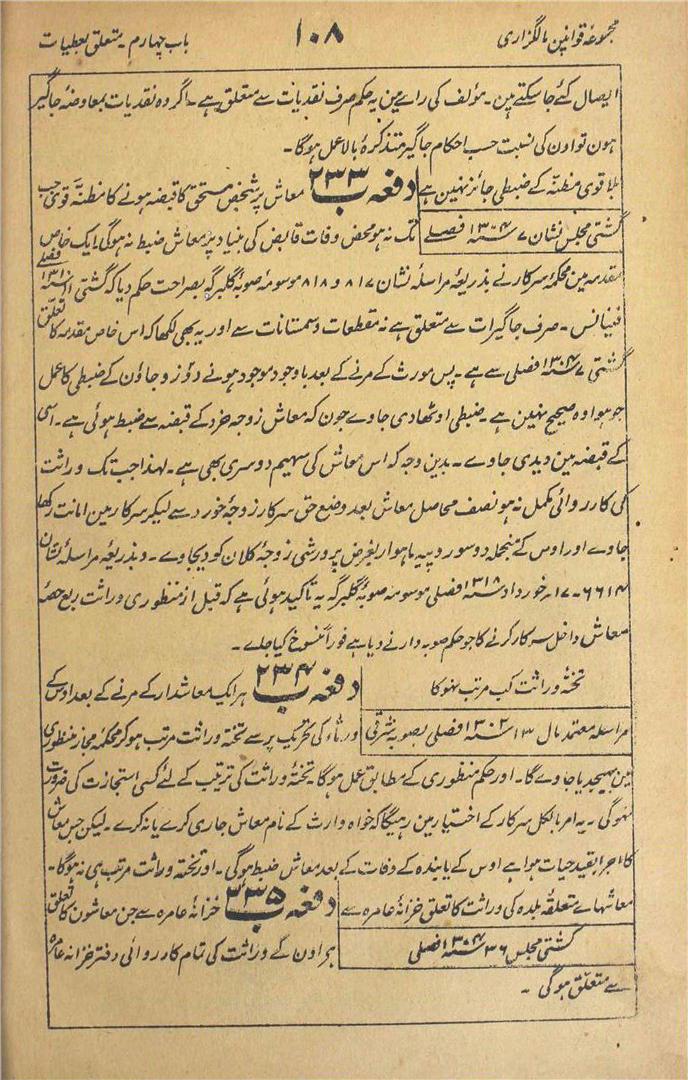 مجموعۂ قوانین مالگزاری
۱۰۸
باب چہارم۔ متعلق بعطیات
ایصال کئے جا سکتے ہین۔ مؤلف کی راے مین یہ حکم صرف نقدیات سے متعلق ہے۔ اگر وہ نقدیات بمعاوضۂ جاگیر
ہون تو اون کی نسبت حسب احکام جاگیر متذکرۂ بالا عمل ہوگا۔
بلا قوی مظنّہ کے ضبطی جائز نہین ہے
دفعہ ۲۳۳ ب معاش پر شخص مستحق کا قبضہ ہونے کا مظنّہ قوی جب
گشتی مجلس نشان ۷ سنہ ۱۳۰۴ فصلے
تک نہ ہو محض وفات قابض کی بنیاد پر معاش ضبط نہ ہوگی ایک خاص
مقدمہ مین محکمۂ سرکار نے بذریعۂ مراسلہ نشان ۸۱۷ و ۸۱۸ موسومہ صوبۂ گلبرگہ بصراحت حکم دیا کہ گشتی سنہ ۱۳۱۰ فصلے
فینانس۔ صرف جاگیرات سے متعلق ہے نہ مقطعات و سمستانات سے اور یہ بھی لکھا کہ اس خاص مقدمہ کا تعلّق
گشتی ۷ سنہ ۱۳۰۴ فصلی سے ہے۔ پس مورث کے مرنے کے بعد باوجود موجود ہونے دو زوجاؤن کے ضبطی کا عمل
جو ہوا وہ صحیح نہین ہے۔ ضبطی اوٹھا دی جاوے جون کہ معاش زوجہ خرد کے قبضہ سے ضبط ہوئی ہے۔ اسی
کے قبضہ مین دیدی جاوے۔ بدین وجہ کہ اس معاش کی سہیم دوسری بھی ہے۔ لہذا جب تک وراثت
کی کارروائی مکمل نہ ہو نصف محاصل معاش بعد وضع حق سرکار زوجۂ خورد سے لیکر سرکار مین امانت رکھا
جاوے اور اوس کے منجملہ دو سو روپیہ ماہوار بغرض پرورشی زوجۂ کلان کو دیجاوے۔ و بذریعۂ مراسلۂ نشان
۶۶۱۴۔ ۱۷ خورداد سنہ ۱۳۱۸ فصلی موسومہ صوبۂ گلبرگہ یہ تاکید ہوئی ہے کہ قبل از منظوری وراثت ربع حصہ
معاش داخل سرکار کرنے کا جو حکم صوبہ دار نے دیا ہے فوراً منسوخ کیا جاے۔
تختۂ وراثت کب مرتب نہوگا
دفعہ ۲۳۴ ب ہر ایک معاشدار کے مرنے کے بعد اوس کے
مراسلہ معتمد مال ۱۳ سنہ ۱۳۰۲ فصلی بصوبہ شرقی
ورثاء کی تحریک پر سے تختۂ وراثت مرتب ہو کر محکمۂ مجاز منظوری
مین بھیجدیا جاوے گا۔ اور حکم منظوری کے مطابق عمل ہوگا۔ تختۂ وراثت کی ترتیب کے لئے کسی استجازت کی ضرورت
نہوگی۔ یہ امر بالکل سرکار کے اختیار مین رہیگا کہ خواہ وارث کے نام معاش جاری کرے یا نہ کرے۔ لیکن جس معاش
کا اجرا بقید حیات ہوا ہے اوس کے یابندہ کے وفات کے بعد معاش ضبط ہوگی۔ اور تختۂ وراثت مرتب ہی نہ ہوگا۔
معاشہاے متعلقہ بلدہ کی وراثت کا تعلق خزانۂ عامرہ سے
دفعہ ۲۳۵ ب خزانۂ عامرہ سے جن معاشون کا تعلق
گشتی مجلس ۳۶ سنہ ۱۳۰۴ فصلی
ہر اون کے وراثت کی تمام کارروائی دفتر خزانۂ عامرہ
سے متعلق ہوگی۔